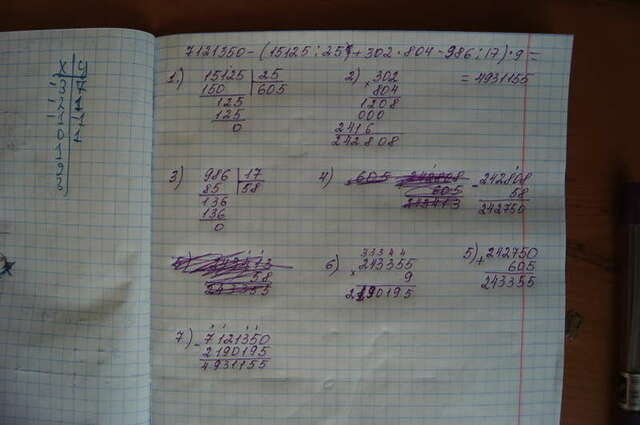 7121350-(15125:25)+302·804-986:17)·9=
=4931155
1) 15125 | 25
150 | 605
125
125
0
2) × 302
804
1208
000
2416
242808
3) 986 | 17
85 | 58
136
136
0
4) -242808
58
242750
5) + 242750
605
243355
6) 33344
× 243355
9
2190195
7) -7121350
2190195
4931155